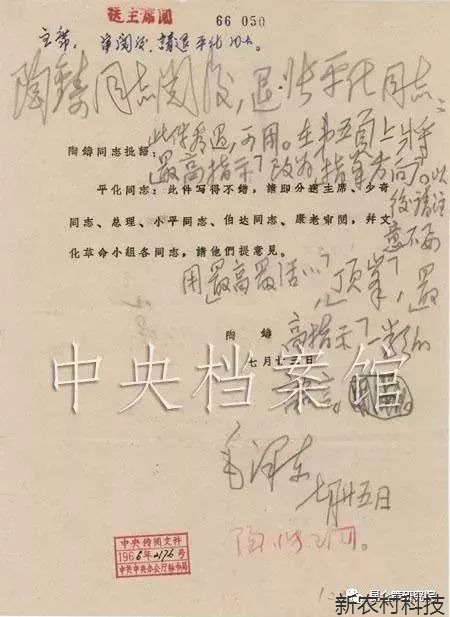 送主席閱
66 050
主席：审閱後，請退平化同志。
陶鑄同志閱后，退张平化同志：
此件看过，可用。在第五頁上将
「最高指示」改为「指揮方向」。以
后請注
意不要
用「最高最活…」，「頂峯」，「最
高指示」一类的
陶鑄同志批語：
平化同志：此件写得不錯，請即分送主席、少奇
同志、总理、小平同志、伯达同志、康老审閱，幷文
化革命小組各同志，請他們提意見。
陶鑄
七月廿三日
中央档案馆
毛泽东
七月廿五日
中央传閱文件
1966年2176号
中共中央办公厅秘书局
新农村科技